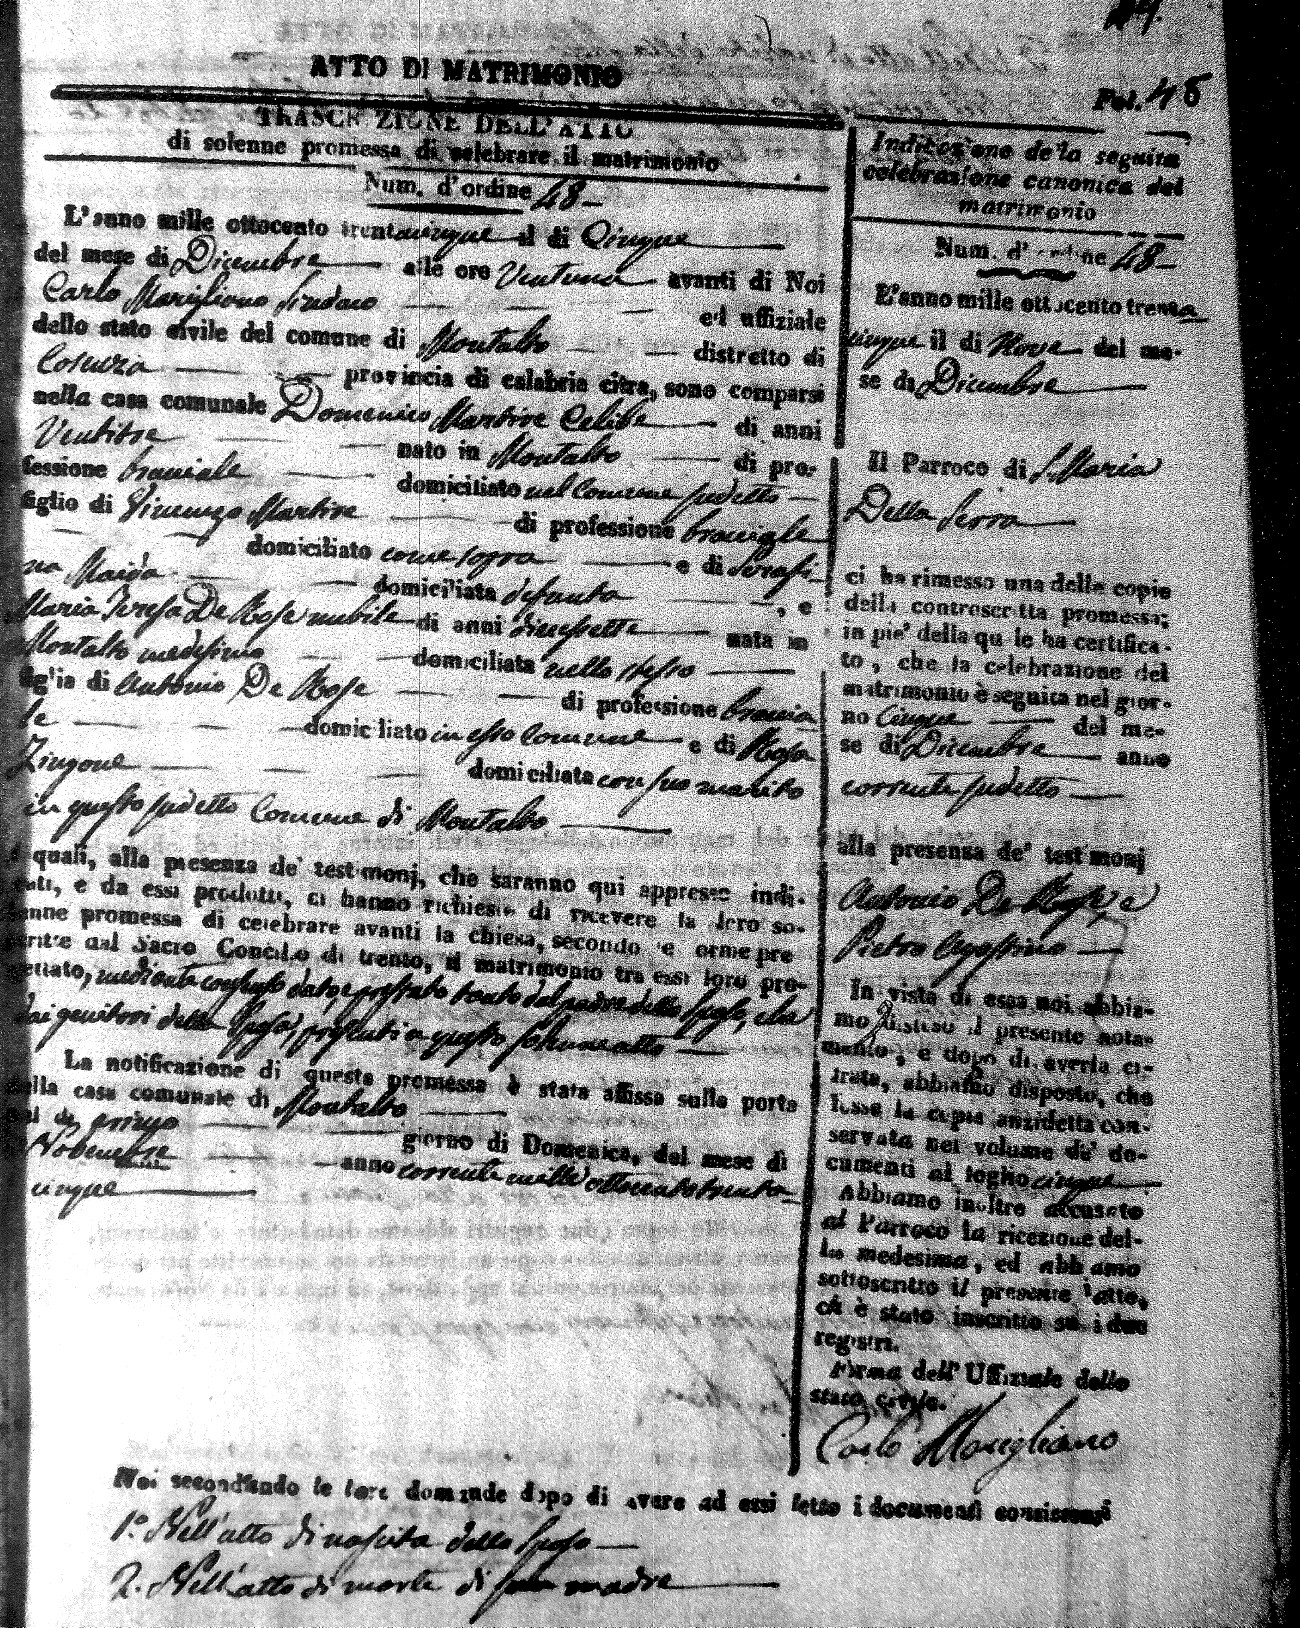 ATTO DI MATRIMONIO
Fol. 48
TRASCRIZIONE DELL'ATTO
di solenne promessa di celebrare il matrimonio
Num. d'ordine 48-
L'anno mille ottocento trentacinque il di Cinque
del mese di Dicembre alle ore Ventuna avanti di Noi
Carlo Marigliano Sindaco ed uffiziale
dello stato civile del comune di Montalto distretto di
Cosenza provincia di calabria citra, sono comparsi
nella casa comunale Domenico Martire Celibe di anni
Ventitre nato in Montalto di pro-
fessione bracciale domiciliato nel Comune sudetto
figlio di Vincenzo Martire di professione bracciale
domiciliato come sopra e di Serafi-
na Maida domiciliata defunta , e
Maria Teresa De Rose nubile di anni diciassette nata in
Montalto medesimo domiciliata nello stesso
figlia di Antonio De Rose di professione braccia
le domiciliato in esso Comune e di Rosa
Zingone domiciliata con suo marito
in questo sudetto Comune di Montalto
quali, alla presenza de' testimonj, che saranno qui appresso indi-
cati, e da essi prodotti, ci hanno richiesto di ricevere la loro so-
lenne promessa di celebrare avanti la chiesa, secondo le forme pre
scritte dal Sacro Concilio di trento, il matrimonio tra essi loro pro-
gettato, mediante consenso dato e prestato tanto dal padre dello sposo, che
dai genitori della Sposa, presenti a questo solenne atto
La notificazione di questa promessa è stata affissa sulla porta
della casa comunale di Montalto
nel di primo giorno di Domenica, del mese di
Novembre anno corrente mille ottocento trenta-
cinque
Indicazione della seguita
celebrazione canonica del
matrimonio
Num. d'ordine 48-
L'anno mille ottocento trenta
cinque il di Nove del me-
se di Dicembre
Il Parroco di S. Maria
Della Serra
ci ha rimesso una delle copie
della controscritta promessa;
in pie' della quale ha certifica-
to, che la celebrazione del
matrimonio è seguita nel gior-
no Cinque del me-
se di Dicembre anno
corrente sudetto
alla presenza de' testimonj
Antonio De Rose, e
Pietro Agostino
In vista di essa noi abbia-
mo disteso il presente nota-
mento, e dopo di averla ci-
frata, abbiamo disposto, che
fosse la copia anzidetta con-
servata nel volume de' do-
cumenti al foglio cinque
Abbiamo inoltre accusato
al Parroco la ricezione del-
la medesima, ed abbiamo
sottoscritto il presente atto,
ch è stato inscritto su i due
registri.
Firma dell'Uffiziale dello
stato civile.
Carlo Marigliano
Noi secondando le loro domande dopo di avere ad essi letto i documenti consistenti
1.° Nell'atto di nascita della Sposa
2. Nell'atto di morte di sua madre